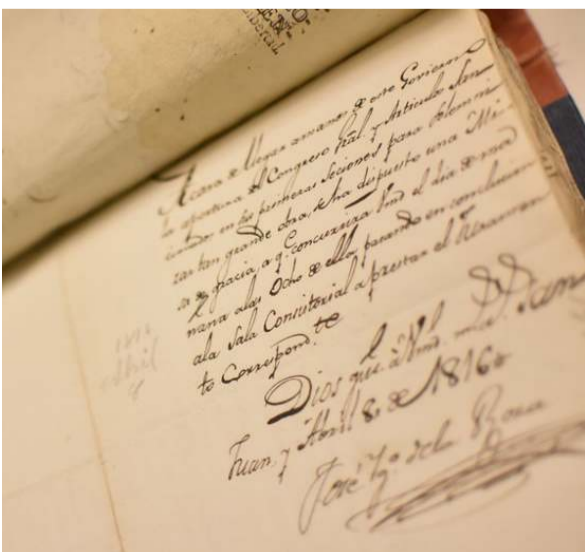 Acava de llegar avisado este Govierno
la apertura del Congreso Gral. y Articulo San
cionado en las primeras Seciones para solemni
zar tan grande obra, se ha dispuesto una Mi
sa de gracia, a q.e concurrira Vmd el dia de ma
ñana alas Ocho de ella, pasando en conclucion
ala Sala Consistorial a prestar el Juramen
to Correspond.te
Dios gue. a Vmd. m.s a.s San
Juan, y Abril 8, de 1816,,
José Ig.o dela Rosa
Abril
8